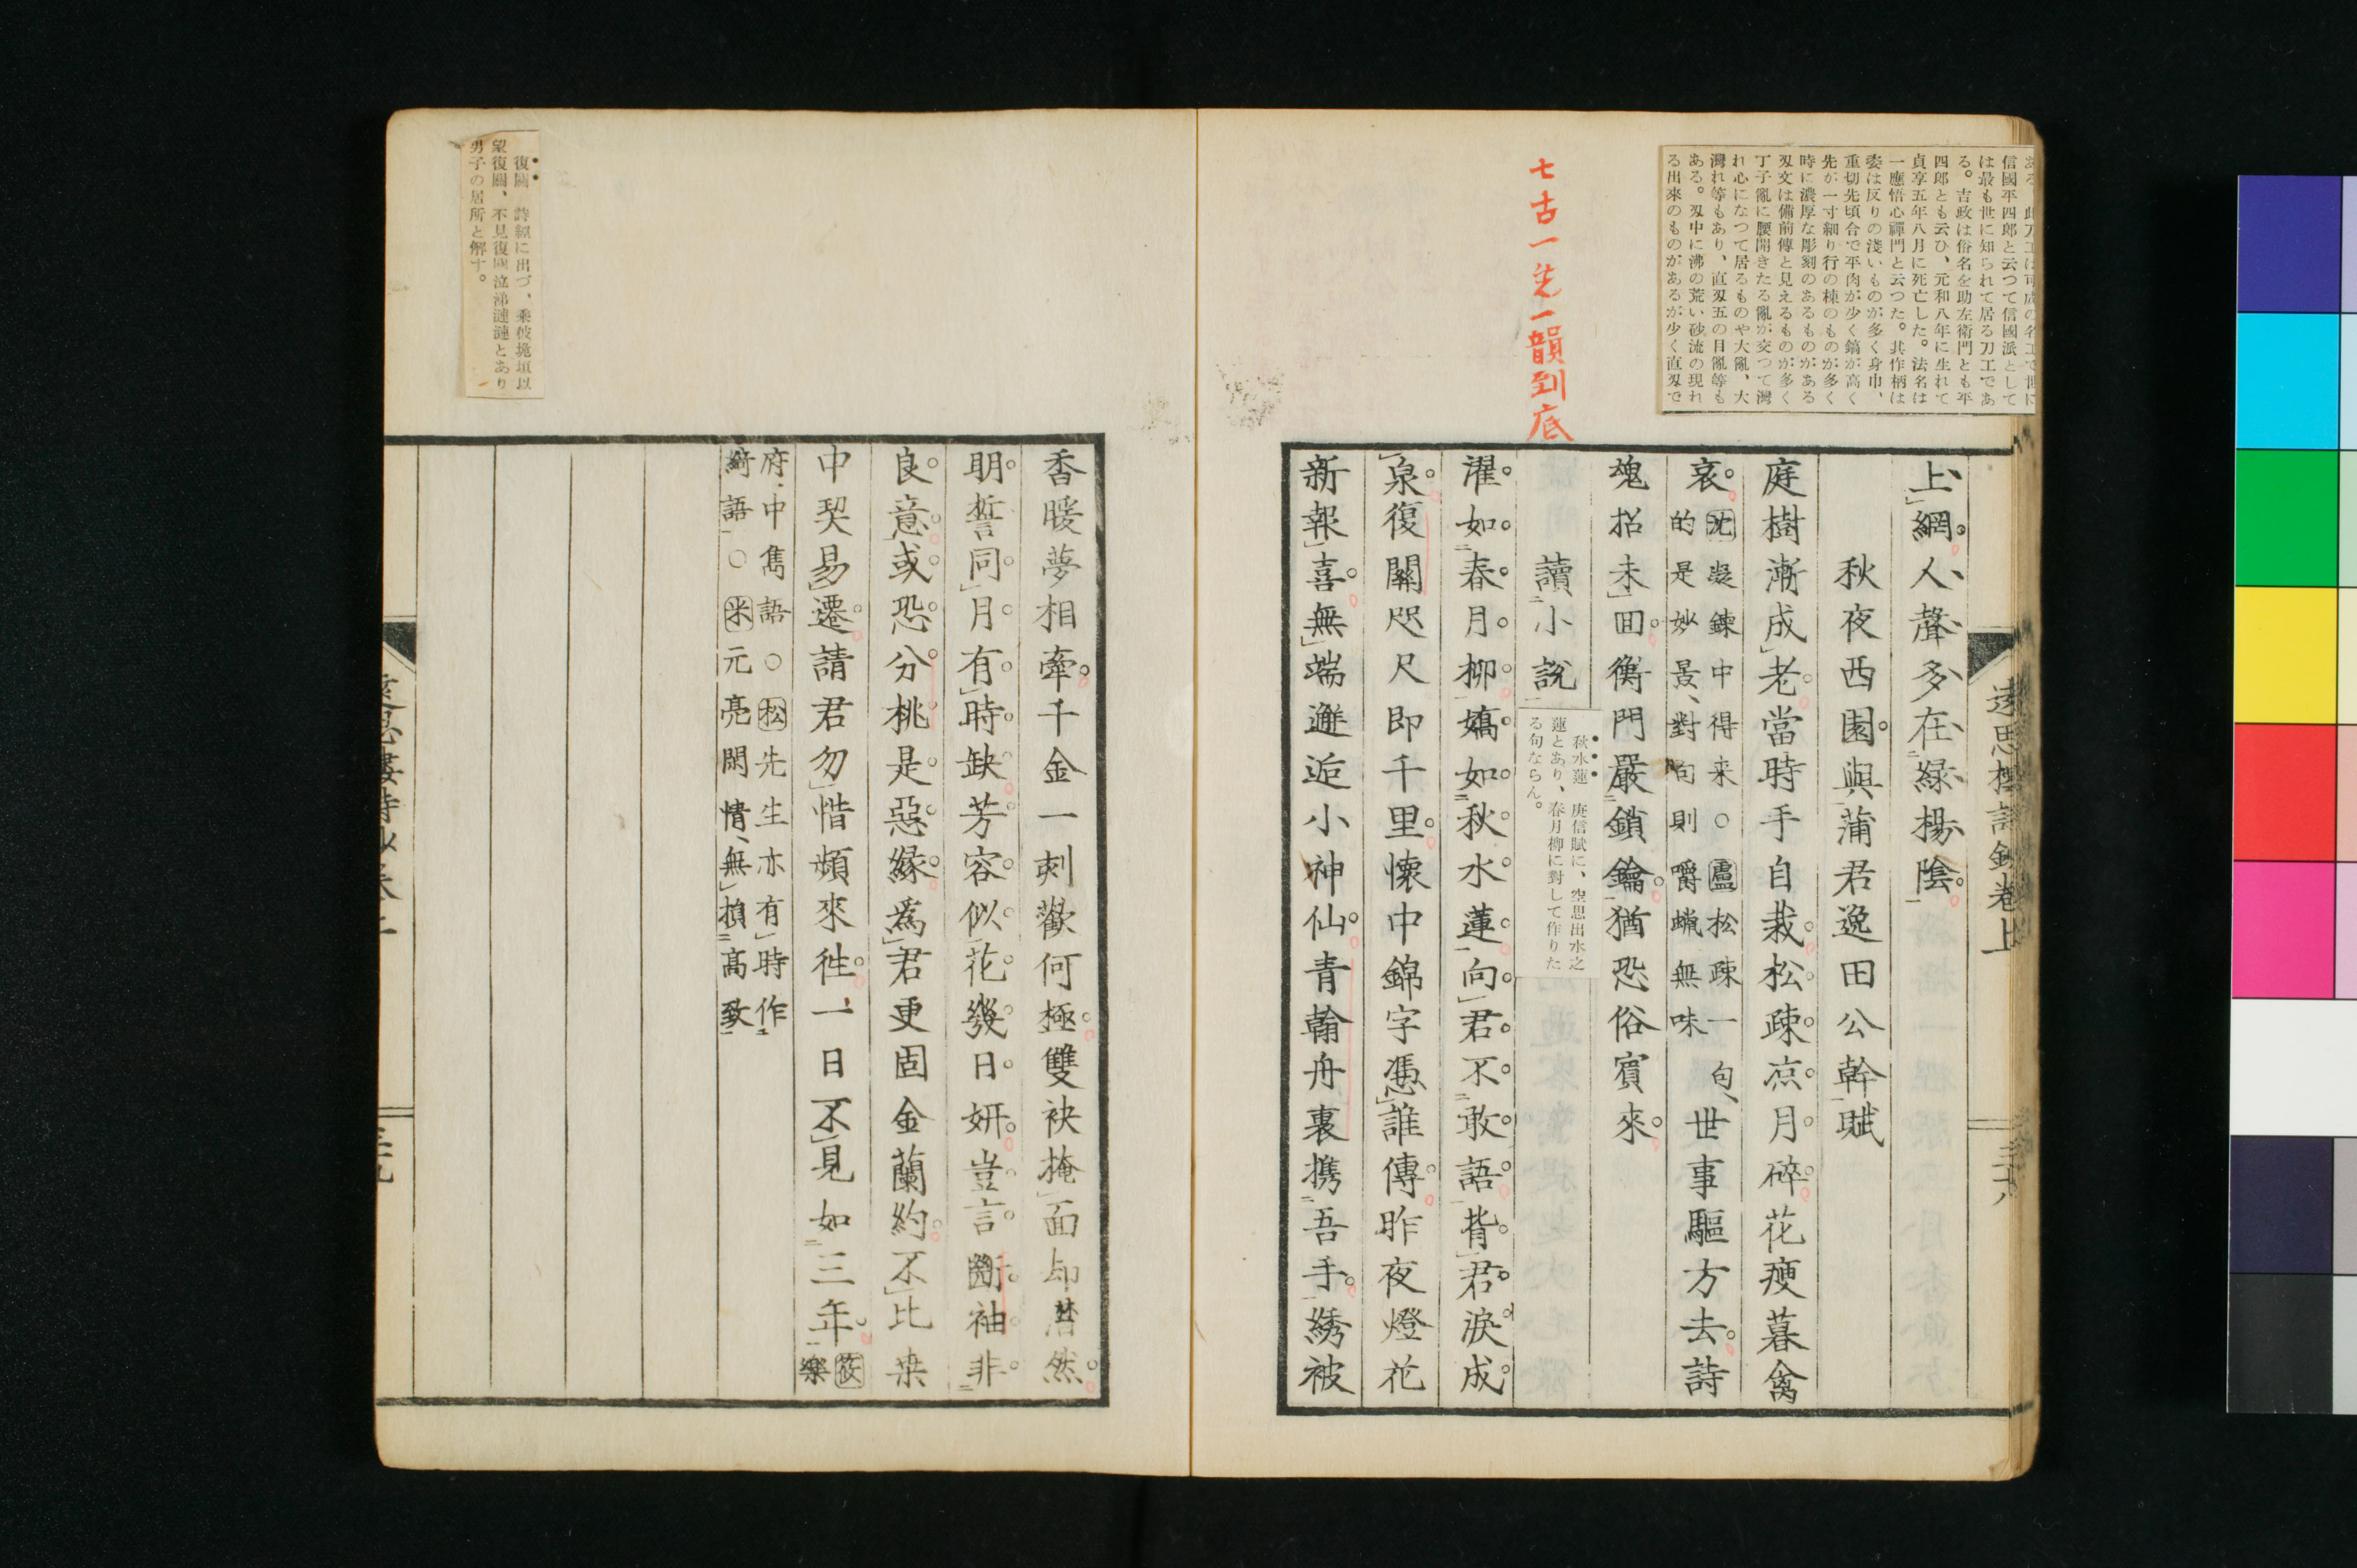 ある。此刀工は可成の名工で世に
信國平四郎と云つて信國派として
は最も世に知られて居る刀工であ
る。吉政は俗名を助左衛門とも平
四郎とも云ひ、元和八年に生れて
貞享五年八月に死亡した。法名は
一應悟心禪門と云つた。其作柄は
姿は反りの淺いものが多く身巾、
重切先頃合で平肉が少く鎬が高く
先が一寸細り行の棟のものが多く
時に濃厚な彫刻のあるものがある
刄文は備前傳と見えるものが多く
丁子亂に腰開きたる亂が交つて灣
れ心になつて居るものや大亂、大
灣れ等もあり、直刄五の目亂等も
ある。刄中に沸の荒い砂流の現れ
る出來のものがあるが少く直刄で
七古一先一韻到底
遠思樓詩鈔卷上
三十八
上網人聲多在綠楊陰
秋夜西園與蒲君逸田公幹賦
庭樹漸成老當時手自栽松疎点月碎花瘦暮禽
哀沈凝鍊中得来○盧松疎一句、
的是妙景、對句則嚼蝋無味
世事驅方去詩
魂招未回衡門嚴鎖鑰猶恐俗賓來
讀小說
秋水蓮 庾信賦に、空思出水之
蓮とあり、春月柳に對して作りた
る句ならん。
濯如春月柳嬌如秋水蓮向君不敢語背君淚成
泉復關咫尺即千里懷中錦字憑誰傳昨夜燈花
新報喜無端邂逅小神仙青翰舟裏携吾手綉被
復關 詩經に出づ、乘彼垝垣以
望復關、不見復關泣涕漣漣とあり
男子の居所と解す。
香暖夢相牽千金一刻歡何極雙袂掩面却潸然
明誓同月有時缺芳容似花幾日妍豈言斷袖非
良意或恐分桃是惡緣爲君更固金蘭約不比桒
中契易遷請君勿惜頻來徃一日不見如三年筱
樂
府中雋語○松先生亦有時作
綺語○米元亮閑情、無損高致
三十九